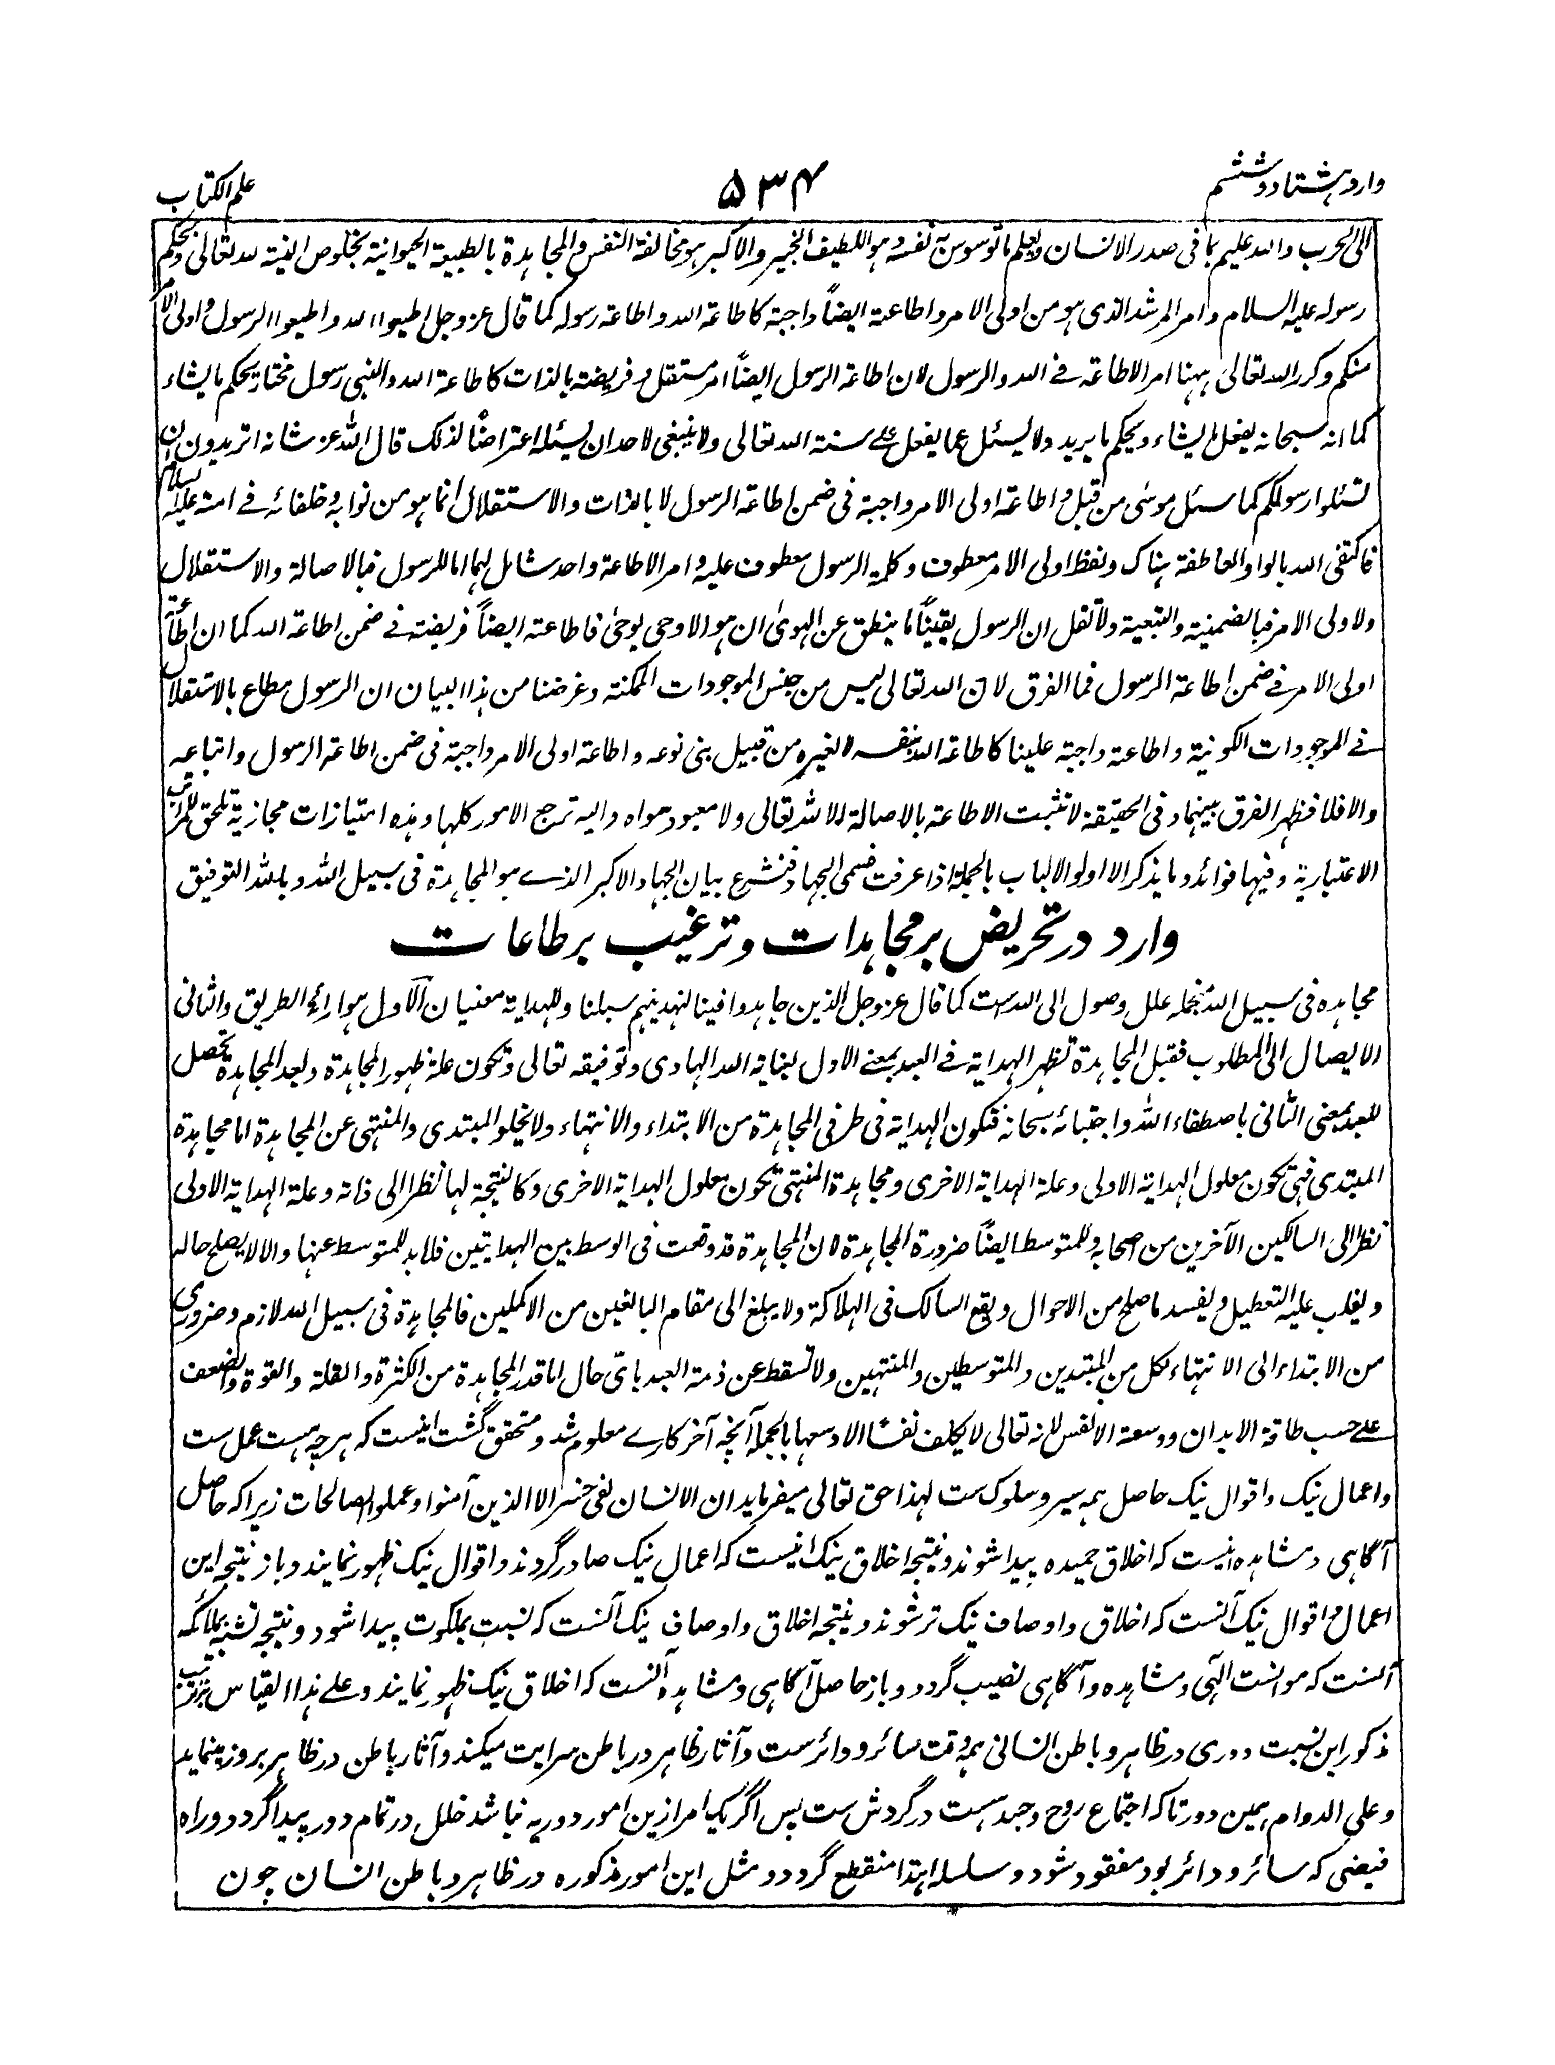 وارد ہشتاد و ششم
۵۳۴
علم الکتاب
الی الحرب والله علیم بما فی صدر الانسان ویعلم ما توسوس به نفسه وهو اللطیف الخبیر والاکبر هو مخالفة النفس والمجاهدة بالطبیعة الحیوانیة بخلوص النیة لله تعالی وبحکم
رسوله علیه السلام وامر المرشد الذی هو من اولی الامر واطاعته ایضاً واجبة کاطاعة الله واطاعة رسوله کما قال عز وجل اطیعوا الله واطیعوا الرسول واولی الامر
منکم وکرر الله تعالی ههنا امر الاطاعة فے الله والرسول لان اطاعة الرسول ایضاً امر مستقل وفریضة بالذات کاطاعة الله والنبی رسول مختار یحکم ما یشاء
کما انه سبحانه یفعل ما یشاء ویحکم ما یرید ولا یسئل عما یفعل علے سنة الله تعالی ولا ینبغی لاحد ان یسئله اعتراضاً لذلک قال الله عز شانه اتریدون ان
تسئلوا رسولکم کما سئل موسی من قبل واطاعة اولی الامر واجبة فی ضمن اطاعة الرسول لا بالذات والاستقلال انما هو من نوابه وخلفائه فے امته علیه السلام
فاکتفی الله بالواو العاطفة هناک ولفظ اولی الامر معطوف وکلمة الرسول معطوف علیه وامر الاطاعة واحد شامل لهما اما للرسول فبالاصالة والاستقلال
ولاولی الامر فبالضمنیة والتبعیة ولا تقل ان الرسول یقیناً ما ینطق عن الهوی ان هو الا وحی یوحی فاطاعته ایضاً فریضة فے ضمن اطاعة الله کما ان اطاعة
اولی الامر فے ضمن اطاعة الرسول فما الفرق لان الله تعالی لیس من جنس الموجودات الممکنة وغرضنا من هذا البیان ان الرسول مطاع بالاستقلال
فے الموجودات الکونیة واطاعته واجبة علینا کاطاعة الله بنفسه لا لغیره من قبیل بنی نوعه واطاعة اولی الامر واجبة فی ضمن اطاعة الرسول واتباعه
والا فلا فظهر الفرق بینهما وفی الحقیقة لا تثبت الاطاعة بالاصالة الا لله تعالی ولا معبود سواه والیه ترجع الامور کلها وهذه امتیازات مجازیة تلحق للمراتب
الاعتباریة وفیها فوائد وما یذکر الا اولو الالباب بالجملة اذا عرفت ضمی الجهاد فنشرع بیان الجهاد الاکبر الذے هو المجاهدة فی سبیل الله وبالله التوفیق
وارد در تحریض بر مجاہدات و ترغیب بر طاعات
مجاہدہ فی سبیل اللہ منجملہ علل وصول الی اللہ ست کما قال عز وجل الذین جاهدوا فینا لنهدینهم سبلنا وللهدایة معنیان الاول هو اراءة الطریق والثانی
الایصال الی المطلوب فقبل المجاهدة تظهر الهدایة فے العبد بمعنی الاول بعنایة الله الهادی وتوفیقه تعالی وتکون علة ظهور المجاهدة وبعد المجاهدة تحصل
للعبد بمعنی الثانی باصطفاء الله واجتبائه سبحانه فتکون الهدایة فی طرفی المجاهدة من الابتداء والانتهاء ولا یخلو المبتدی والمنتهی عن المجاهدة اما مجاهدة
المبتدی فهی تکون معلول الهدایة الاولی وعلة الهدایة الاخری ومجاهدة المنتهی تکون معلول الهدایة الاخری وکالنتیجة لها نظرا الی ذاته وعلة الهدایة الاولی
نظرا الی السالکین الآخرین من اصحابه وللمتوسط ایضاً ضرورة المجاهدة لان المجاهدة قد وقعت فی الوسط بین الهدایتین فلا بد للمتوسط عنها والا لا یصلح حاله
ویغلب علیه التعطیل ویفسد ما صلح من الاحوال ویقع السالک فی الهلاکة ولا یبلغ الی مقام البالغین من الاکملین فالمجاهدة فی سبیل الله لازم وضروری
من الابتداء الی الانتهاء لکل من المبتدین والمتوسطین والمنتهین ولا تسقط عن ذمة العبد بای حال اما قدر المجاهدة من الکثرة والقلة والقوة والضعف
علے حسب طاقة الابدان ووسعة الانفس لانه تعالی لا یکلف نفسا الا وسعها بالجملہ آنچہ آخر کارے معلوم شد و متحقق گشت اینست کہ ہرچہ ہست عمل ست
و اعمال نیک و اقوال نیک حاصل ہمہ سیر و سلوک ست لہذا حق تعالی میفرماید ان الانسان لفی خسر الا الذین آمنوا وعملوا الصالحات زیراکہ حاصل
آگاہی و مشاہدہ اینست کہ اخلاق حمیدہ پیدا شوند و نتیجہ اخلاق نیک اینست کہ اعمال نیک صادر گردند و اقوال نیک ظہور نمایند و باز نتیجہ این
اعمال و اقوال نیک آنست کہ اخلاق و اوصاف نیک تر شوند و نتیجہ اخلاق و اوصاف نیک آنست کہ نسبت بملکوت پیدا شود و نتیجہ تشبہ بملائکہ
آنست کہ موانست الٰہی و مشاہدہ و آگاہی نصیب گردد و باز حاصل آگاہی و مشاہدہ آنست کہ اخلاق نیک ظہور نمایند و علے ہذا القیاس بترتیب
مذکور این نسبت دوری در ظاہر و باطن انسانی ہمہ وقت سائر و دائرست و آثار ظاہر در باطن سرایت میکند و آثار باطن در ظاہر بروز مینماید
و علی الدوام ہمین دور تا کہ اجتماع روح و جسد ہست در گردش ست پس اگر یک امر ازین امور دوریہ نباشد خلل در تمام دور پیدا گردد و راہ
فیضی کہ سائر و دائر بود مفقود شود و سلسلہ اہتدا منقطع گردد و مثل این امور مذکورہ در ظاہر و باطن انسان چون